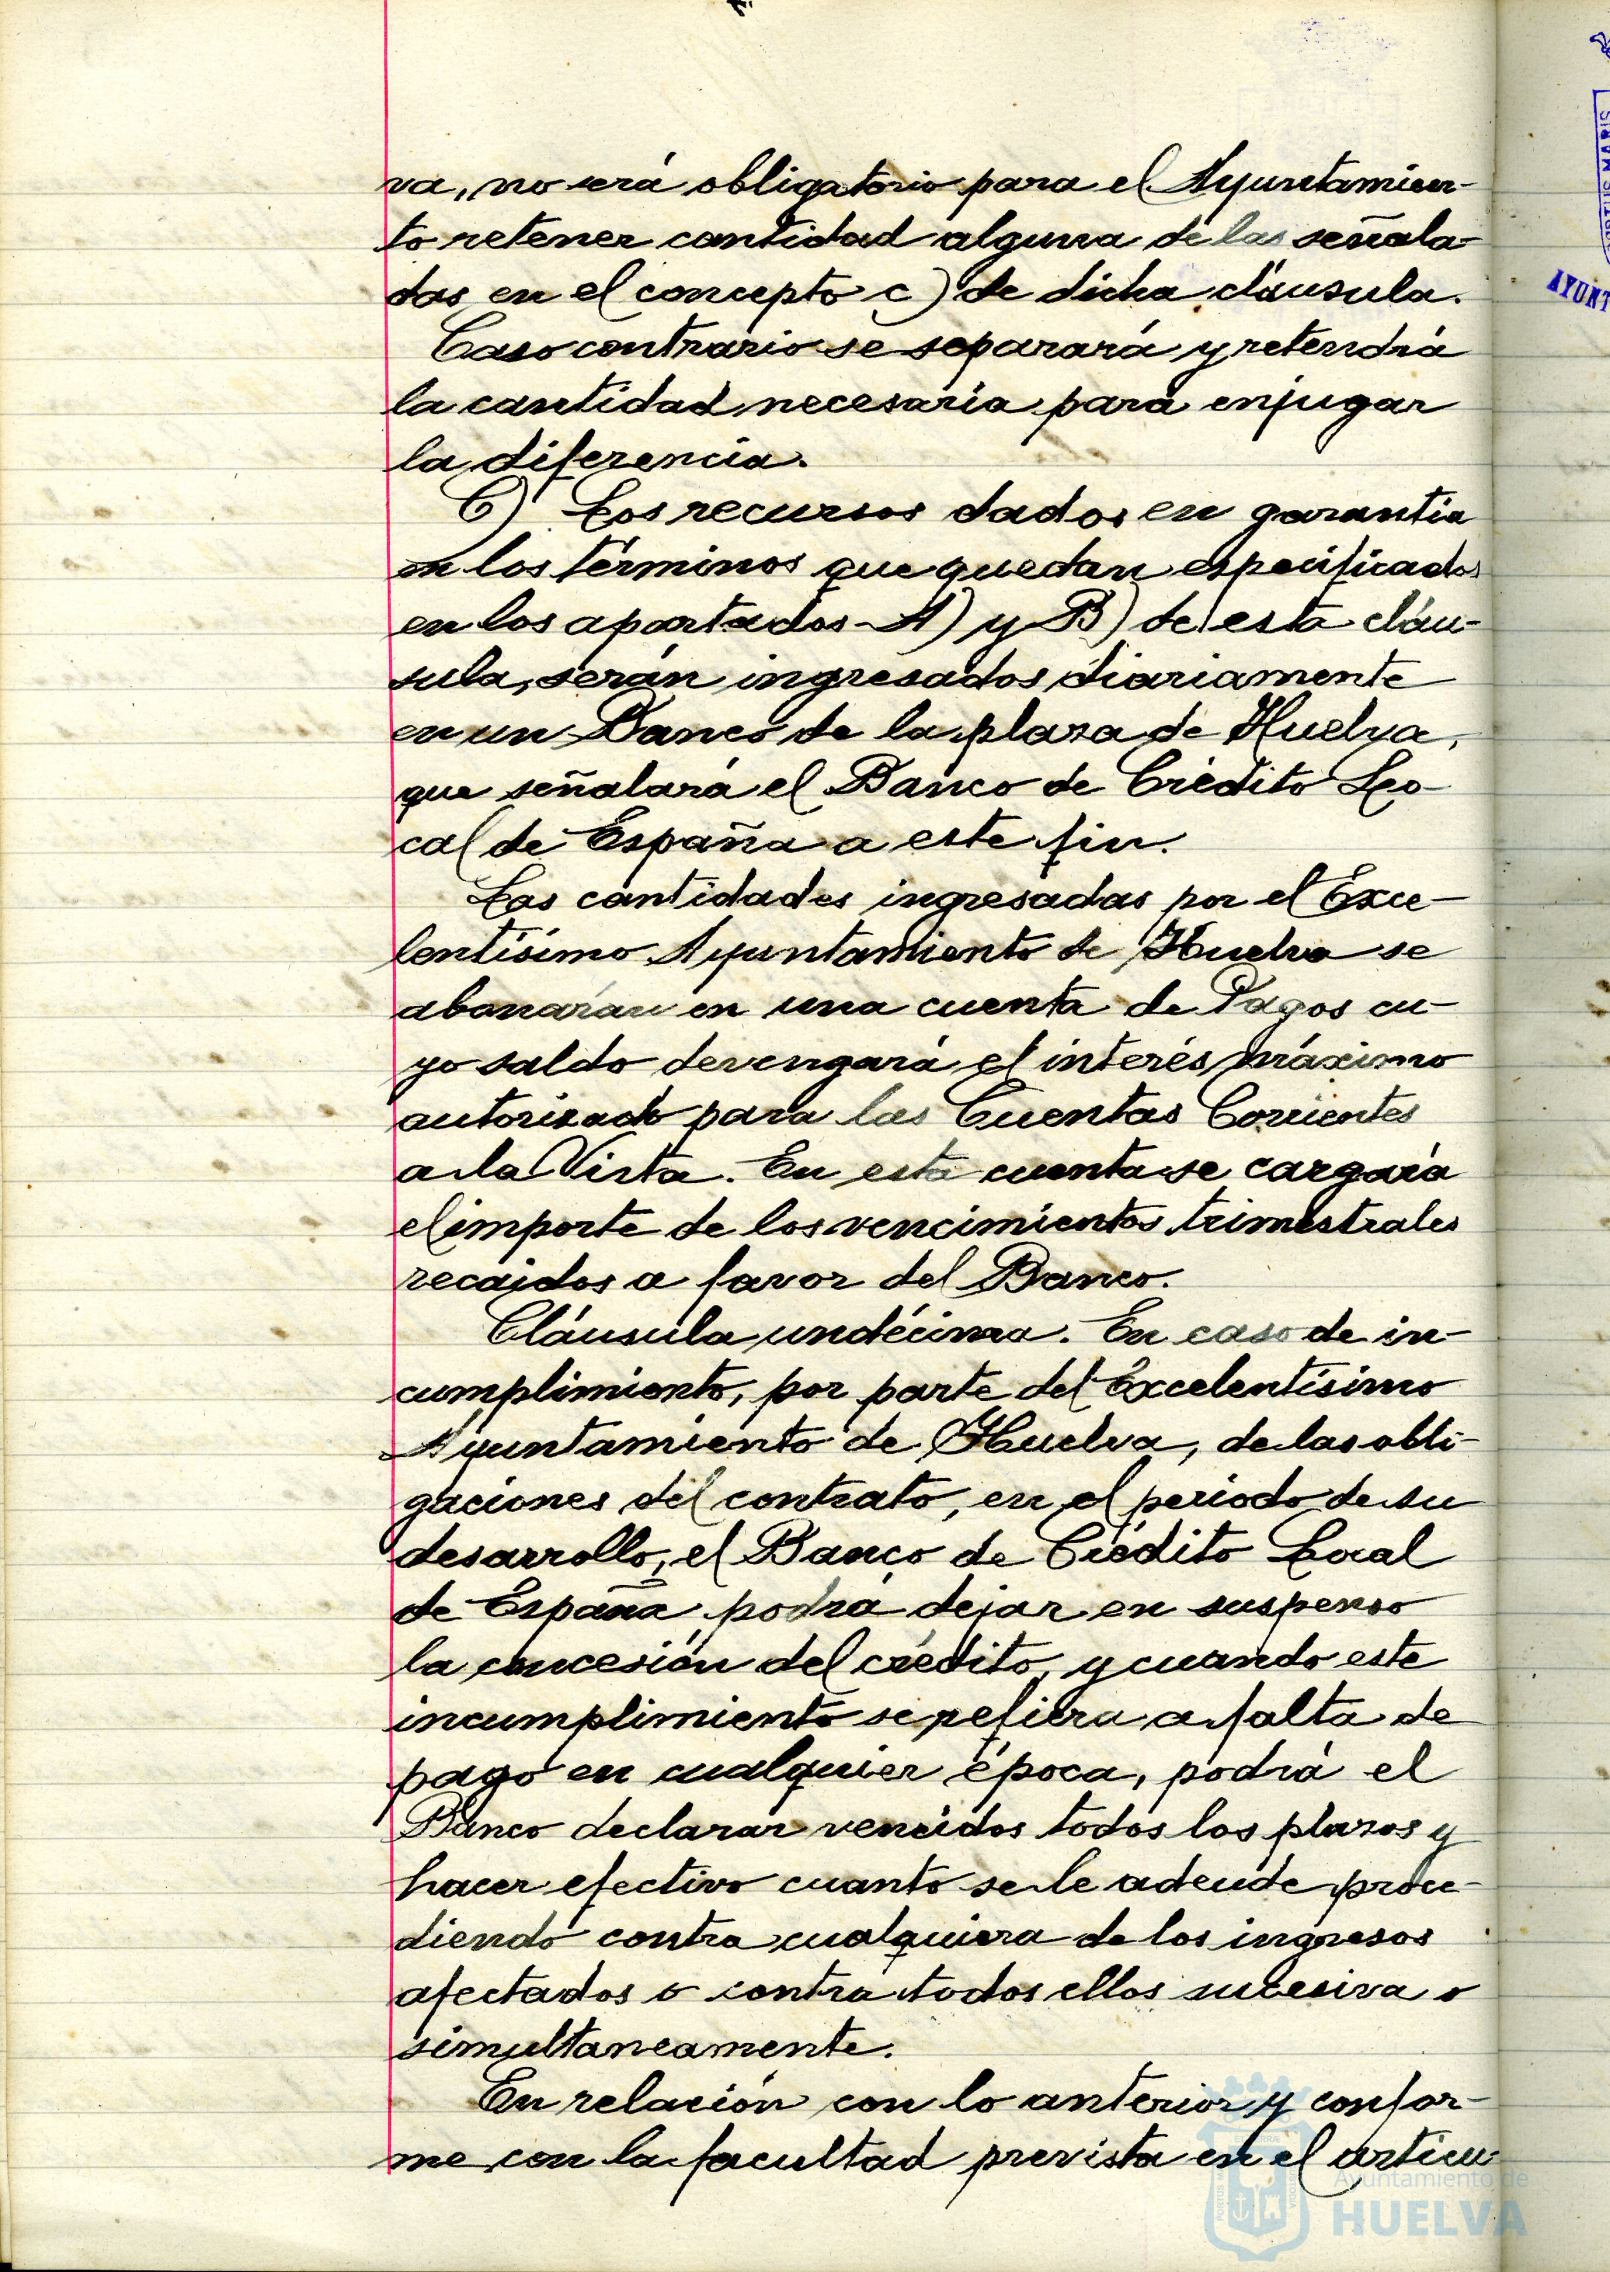 va, no será obligatorio para el Ayuntamien-
to retener cantidad alguna de las señala-
das en el concepto c) de dicha cláusula.
Caso contrario se separará y retendrá
la cantidad necesaria para enjugar
la diferencia.
C) Los recursos dados en garantía
en los términos que quedan especificados
en los apartados A) y B) de esta cláu-
sula, serán ingresados diariamente
en un Banco de la plaza de Huelva,
que señalará el Banco de Crédito Lo-
cal de España a este fin.
Las cantidades ingresadas por el Exce-
lentísimo Ayuntamiento de Huelva se
abonarán en una cuenta de Pagos cu-
yo saldo devengará el interés máximo
autorizado para las Cuentas Corrientes
a la Vista. En esta cuenta se cargará
el importe de los vencimientos trimestrales
recaidos a favor del Banco.
Cláusula undécima. En caso de in-
cumplimiento, por parte del Excelentísimo
Ayuntamiento de Huelva, de las obli-
gaciones del contrato, en el periodo de su
desarrollo, el Banco de Crédito Local
de España podrá dejar en suspenso
la concesión del crédito, y cuando este
incumplimiento se refiera a falta de
pago en cualquier época, podrá el
Banco declarar vencidos todos los plazos y
hacer efectivo cuanto se le adeude proce-
diendo contra cualquiera de los ingresos
afectados o contra todos ellos sucesiva o
simultaneamente.
En relación con lo anterior y confor-
me con la facultad prevista en el artícu-
Ayuntamiento de
HUELVA